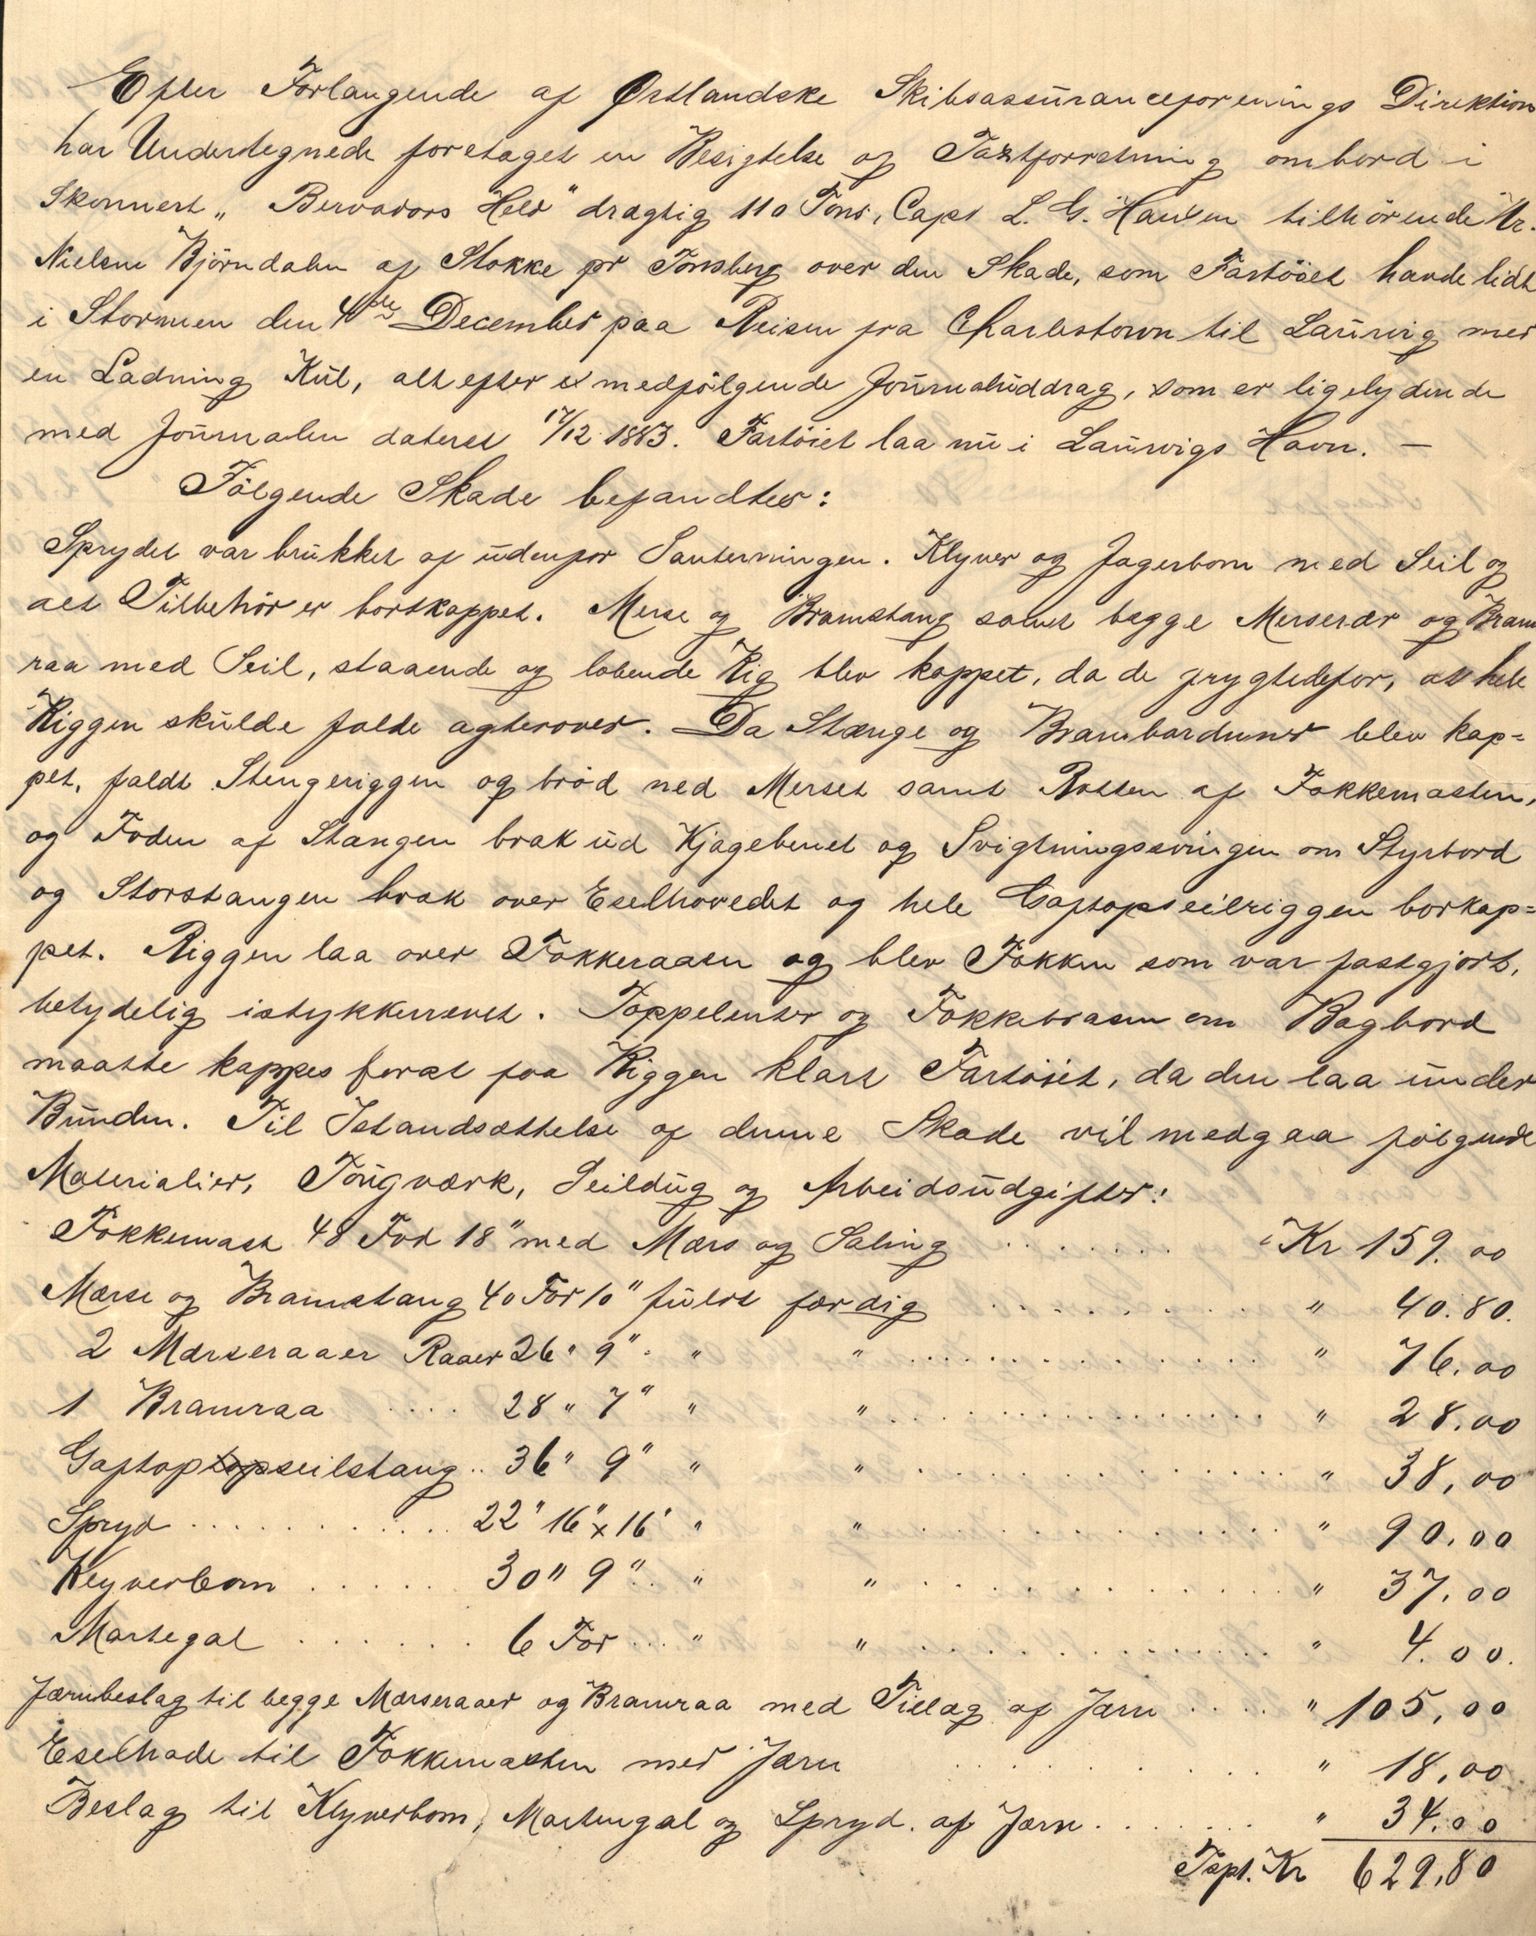 Efter Forlangende af Østlandske Skibsassuranceforenings Direktion
har Undertegnede foretaget en Besigtelse og Taxtforretning ombord i
Skonnert „ Bervadors Held" drægtig 110 Tons, Capt L. G. Hansen tilhörende Hr.
Nielsen Björndalen af Stokke pr Tönsberg over den Skade, som Fartöiet havde lidt
i Stormen den 4de December paa Reisen fra Charlestown til Laurvig med
en Ladning Kul, alt efter medfölgende Journaluddrag, som er ligelydende
med Journalen dateret 17/12 1883. Fartöiet laa nu i Laurvigs Havn. —
Fölgende Skade befandtes:
Sprydet var brukket af udenfor Surerningen. Klyver og Jagerbom med Seil og
alt Tilbehör er bortkappet. Merse og Bramstang samt begge Merserær og Bram
raa med Seil, staaende og löbende Rig blev kappet, da de frygtede for, at hele
Riggen skulde falde agterover. Da Stænge og Brambarduner blev kap=
pet, faldt Stengeriggen og bröd ned Merset samt Rotten af Fokkemasten,
og Foden af Stangen brak ud Kjagebenet og Svigtningssvingen om Styrbord
og Storstangen brak over Eselhovedet og hele Gaftopseilriggen borkap=
pet. Riggen laa over Fokkeraaen og blev Fokken som var fastgjort,
betydelig istykkerrevet. Toppelenter og Fokkebrasen om Bagbord
maatte kappes forat faa Riggen klart Fartöiet, da den laa under
Bunden. Til Istandsættelse af denne Skade vil medgaa fölgende
Materialier, Tougværk, Seildug og Arbeidsudgifter:
Fokkemast 48 Fod 18" med Mærs og Saling . . . . . . . Kr 159.00
Mærse og Bramstang 40 Fod 10" fuldt færdig . . . . . . . " 40.80.
2 Mærseraaer Raaer 26 " 9" " " . . . . . . . " 76.00
1 Bramraa . . . . 28 " 7" " " . . . . . . . " 28.00
Gaftopseilstang .. 36 " 9" " " . . . . . . . " 38,00
Spryd . . . . . . . 22" 16" x 16" " " . . . . . . . " 90.00
Klyverbom . . . . . . 30 " 9" .. " " . . . . . . . " 37.00
Martegal . . . . . . 6 Fod ... " " . . . . . . . " 4.00.
Jærnbeslag til begge Mærseraaer og Bramraa med Tillæg af Jærn . . . . " 105,00
Eselhode til Fokkemasten med Jærn . . . . . . . " 18,00
Beslag til Klyverbom, Martengal og Spryd. af Jærn . . . . . . " 34.00
Tspt. Kr 629,80